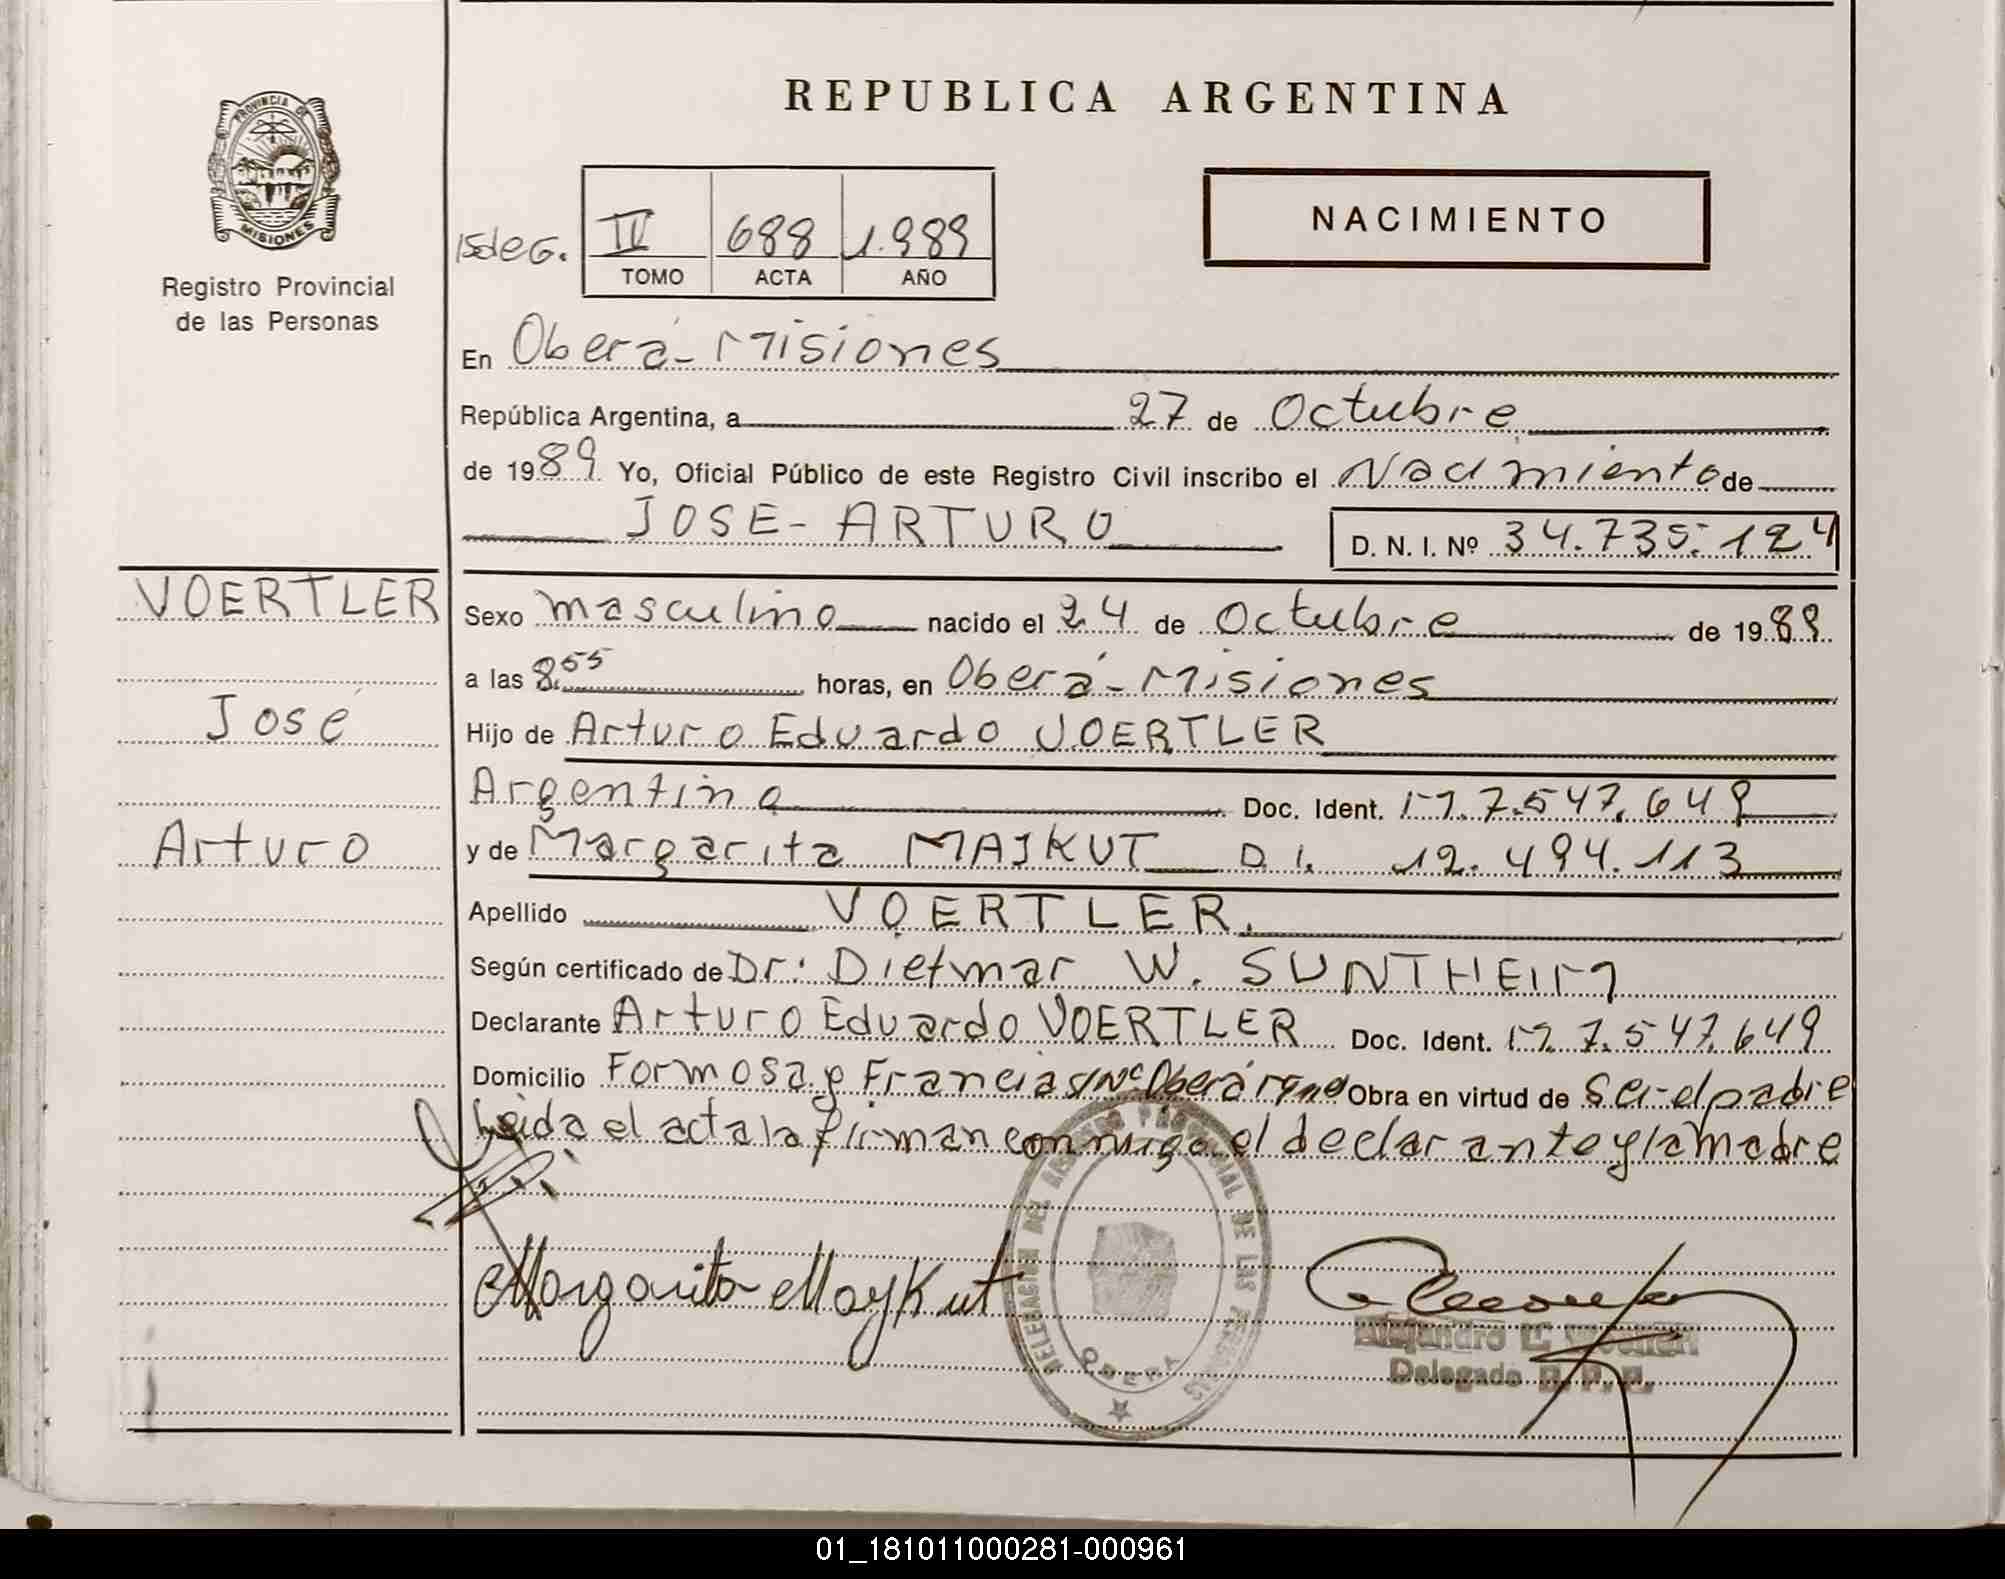 REPUBLICA ARGENTINA
PROVINCIA DE
MISIONES
Registro Provincial
de las Personas
IV 688 1.989
TOMO ACTA AÑO
NACIMIENTO
En Oberá - Misiones
República Argentina, a 27 de Octubre
de 1989 Yo, Oficial Público de este Registro Civil inscribo el Nacimiento de
JOSE - ARTURO
D. N. I. Nº 34.735.124
VOERTLER
José
Arturo
Sexo masculino nacido el 24 de Octubre de 1989
a las 8.55 horas, en Oberá - Misiones
Hijo de Arturo Eduardo VOERTLER
Argentino Doc. Ident. M. 7.547.649
y de Margarita MAJKUT D. I. 12.494.113
Apellido VOERTLER.
Según certificado de Dr: Dietmar W. SUNTHEIM
Declarante Arturo Eduardo VOERTLER Doc. Ident. M. 7.547.649
Domicilio Formosa y Francia S/Nº Oberá Mnes Obra en virtud de ser el padre
Leida el acta la firman conmigo el declarante y la madre
Margarita Maykut
DELEGACION DEL REGISTRO PROVINCIAL DE LAS PERSONAS
OBERA
Alejandro
Delegado R. P. P.
01_181011000281-000961